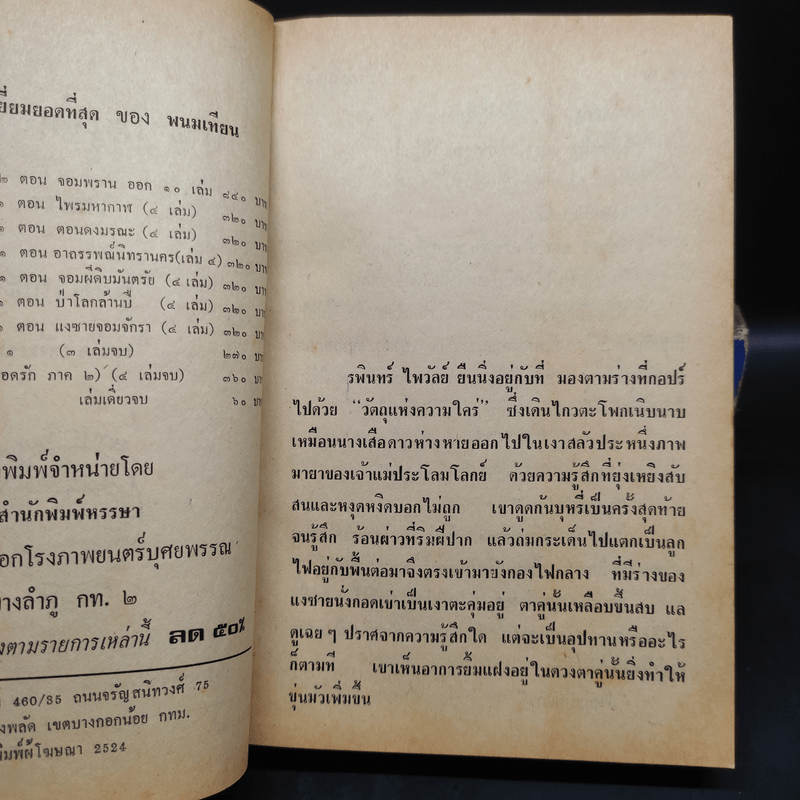 ยี่ยมยอดที่สุด ของ พนมเทียน
๒ ตอน จอมพราน ออก ๑๐ เล่ม ๘๔๐ บาท
๑ ตอน ไพรมหากาฬ (๔ เล่ม) ๓๒๐ บาท
๑ ตอน ตอนดงมรณะ (๔ เล่ม) ๓๒๐ บาท
๑ ตอน อาถรรพณ์นิทรานคร(เล่ม ๔) ๓๒๐ บาท
๑ ตอน จอมผีดิบมันตรัย (๔ เล่ม) ๓๒๐ บาท
๑ ตอน ป่าโลกล้านปี (๔ เล่ม) ๓๒๐ บาท
๑ ตอน แงซายจอมจักรา (๔ เล่ม) ๓๒๐ บาท
๑ (๓ เล่มจบ) ๒๗๐ บาท
อดรัก ภาค ๒) (๔ เล่มจบ) ๓๖๐ บาท
เล่มเดียวจบ ๖๐ บาท
พิมพ์จำหน่ายโดย
สำนักพิมพ์หรรษา
อกโรงภาพยนตร์บุศยพรรณ
างลำภู กท. ๒
งตามรายการเหล่านี้ ลด ๕๐%
460/85 ถนนจรัญสนิทวงศ์ 75
งพลัด เขตบางกอกน้อย กทม.
พิมพ์ผู้โฆษณา 2524
รพินทร์ ไพวัลย์ ยืนนิ่งอยู่กับที่ มองตามร่างที่กอปร์
ไปด้วย “วัตถุแห่งความใคร่” ซึ่งเดินไกวตะโพกเนิบนาบ
เหมือนนางเสือดาวห่างหายออกไปในเงาสลัวประหนึ่งภาพ
มายาของเจ้าแม่ประโลมโลกย์ ด้วยความรู้สึกที่ยุ่งเหยิงสับ
สนและหงุดหงิดบอกไม่ถูก เขาดูดก้นบุหรี่เป็นครั้งสุดท้าย
จนรู้สึก ร้อนผ่าวที่ริมฝีปาก แล้วถ่มกระเด็นไปแตกเป็นลูก
ไฟอยู่กับพื้นต่อมาจึงตรงเข้ามายังกองไฟกลาง ที่มีร่างของ
แงซายนั่งกอดเข่าเป็นเงาตะคุ่มอยู่ ตาคู่นั้นเหลือบขึ้นสบ แล
ดูเฉย ๆ ปราศจากความรู้สึกใด แต่จะเป็นอุปทานหรืออะไร
ก็ตามที เขาเห็นอาการยิ้มแฝงอยู่ในดวงตาคู่นั้นยิ่งทำให้
ขุ่นมัวเพิ่มขึ้น